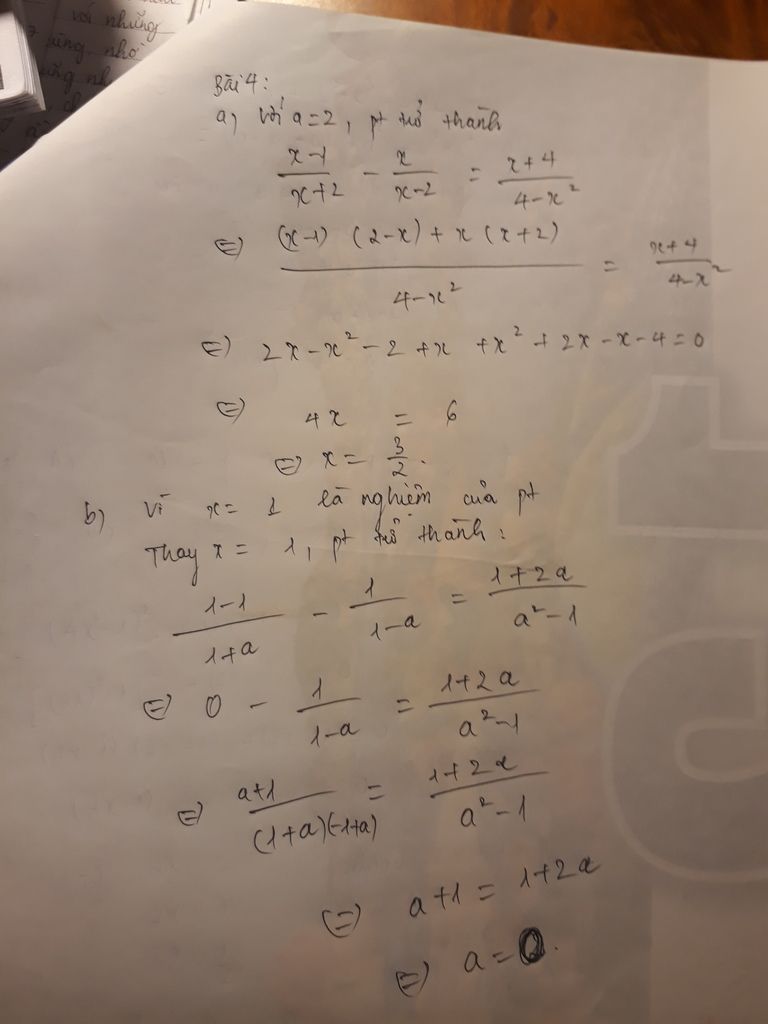 với những
nhỏ
Bài 4:
a) Với a=2, pt trở thành
x-1/x+2 - x/x-2 = x+4/4-x²
⇔ (x-1) (2-x) + x (x+2)/4-x² = x+4/4-x²
⇔ 2x-x²-2 +x +x² + 2x-x-4=0
⇔ 4x = 6
⇔ x = 3/2.
b) Vì x= 1 là nghiệm của pt
Thay x = 1, pt trở thành:
1-1/1+a - 1/1-a = 1+2a/a²-1
⇔ 0 - 1/1-a = 1+2a/a²-1
⇔ a+1/(1+a)(-1+a) = 1+2a/a²-1
⇔ a+1 = 1+2a
⇔ a=0.